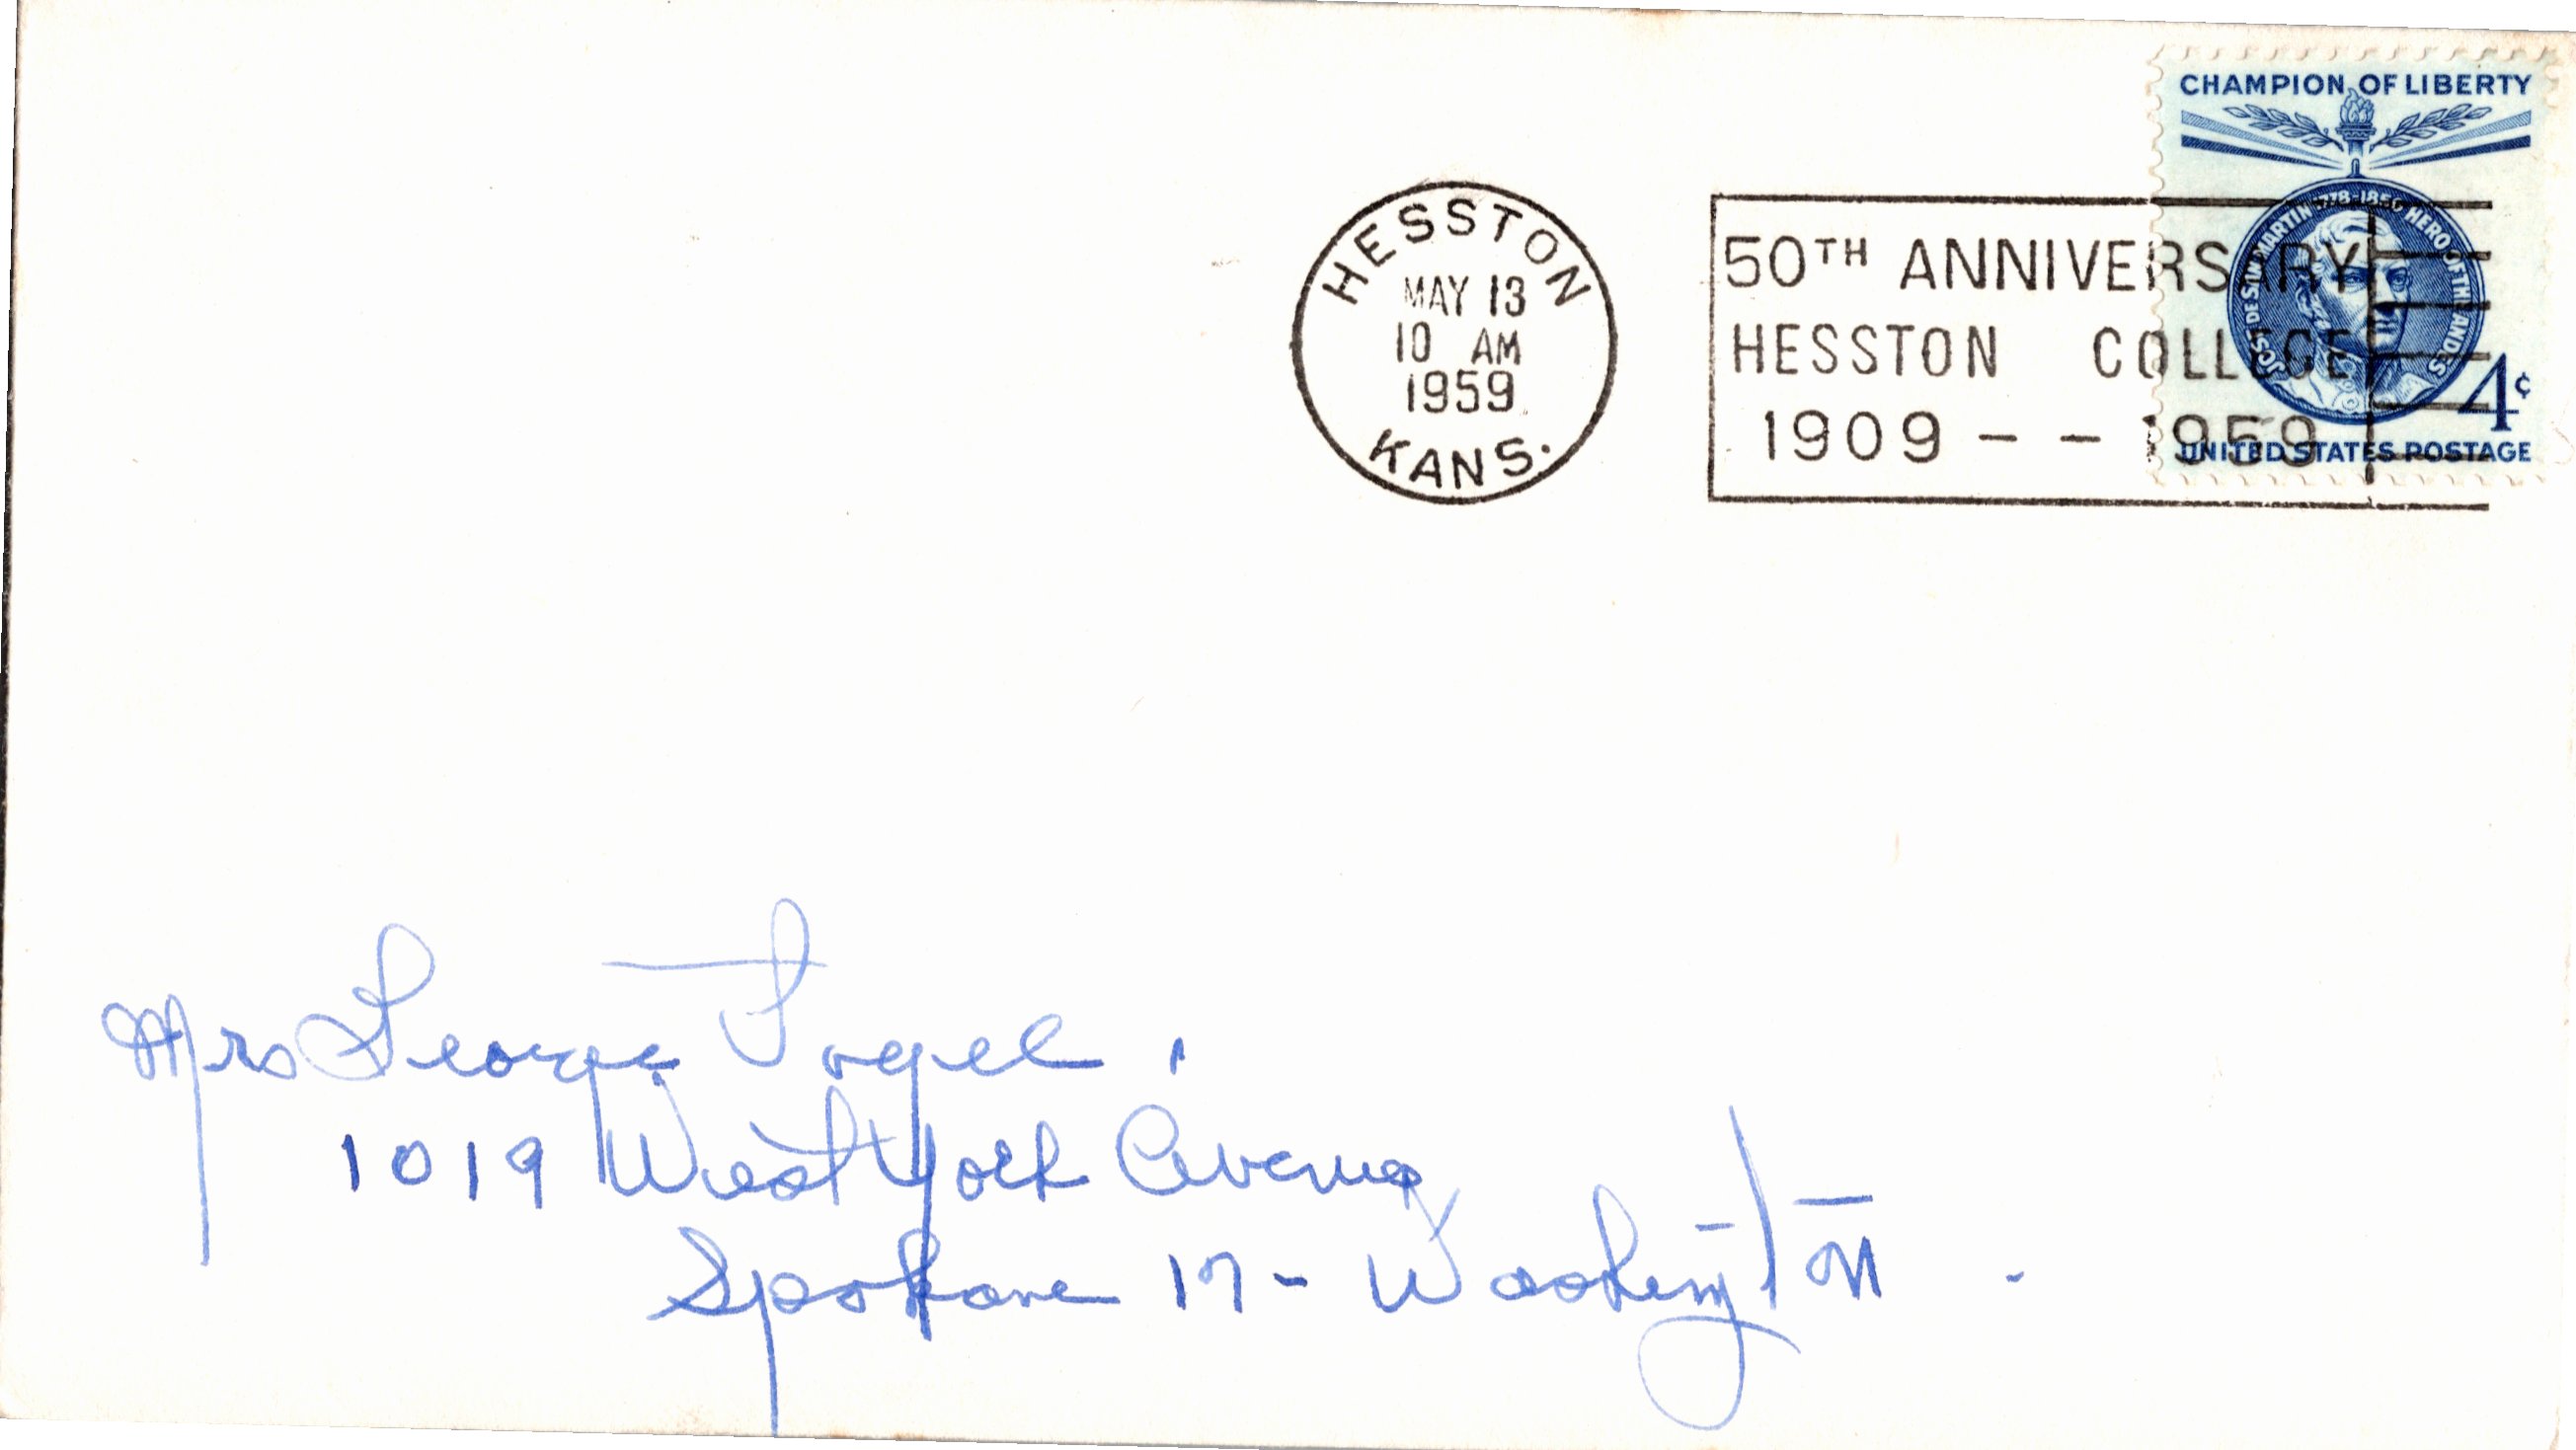 CHAMPION OF LIBERTY
JOSE DE SAN MARTIN 1778-1850 HERO OF THE ANDES
4¢
UNITED STATES POSTAGE
HESSTON
MAY 13
10 AM
1959
KANS.
50TH ANNIVERSARY
HESSTON COLLEGE
1909 - - 1959
Mrs George Fogel,
1019 West York Avenue
Spokane 17 - Washington -